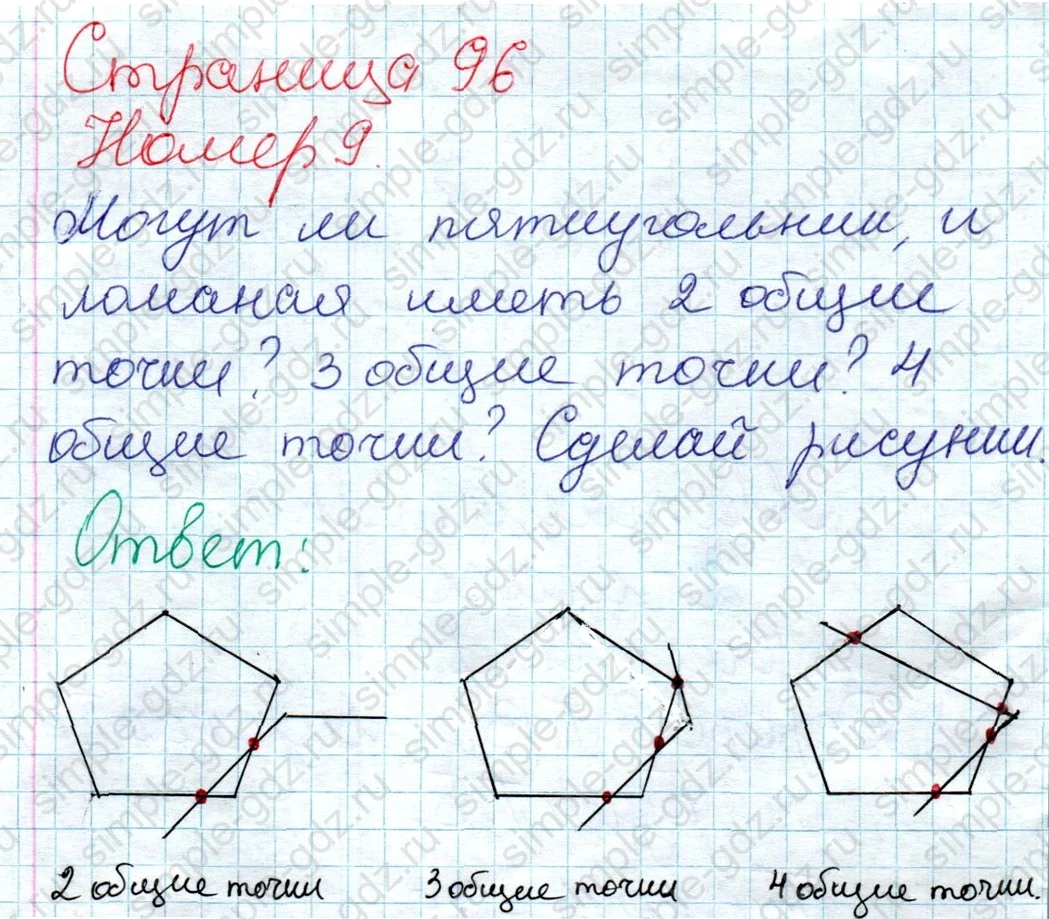 Страница 96
Номер 9.
Могут ли пятиугольник, и
ломаная иметь 2 общие
точки? 3 общие точки? 4
общие точки? Сделай рисунки.
Ответ:
2 общие точки
3 общие точки
4 общие точки.
simple-gdz.ru